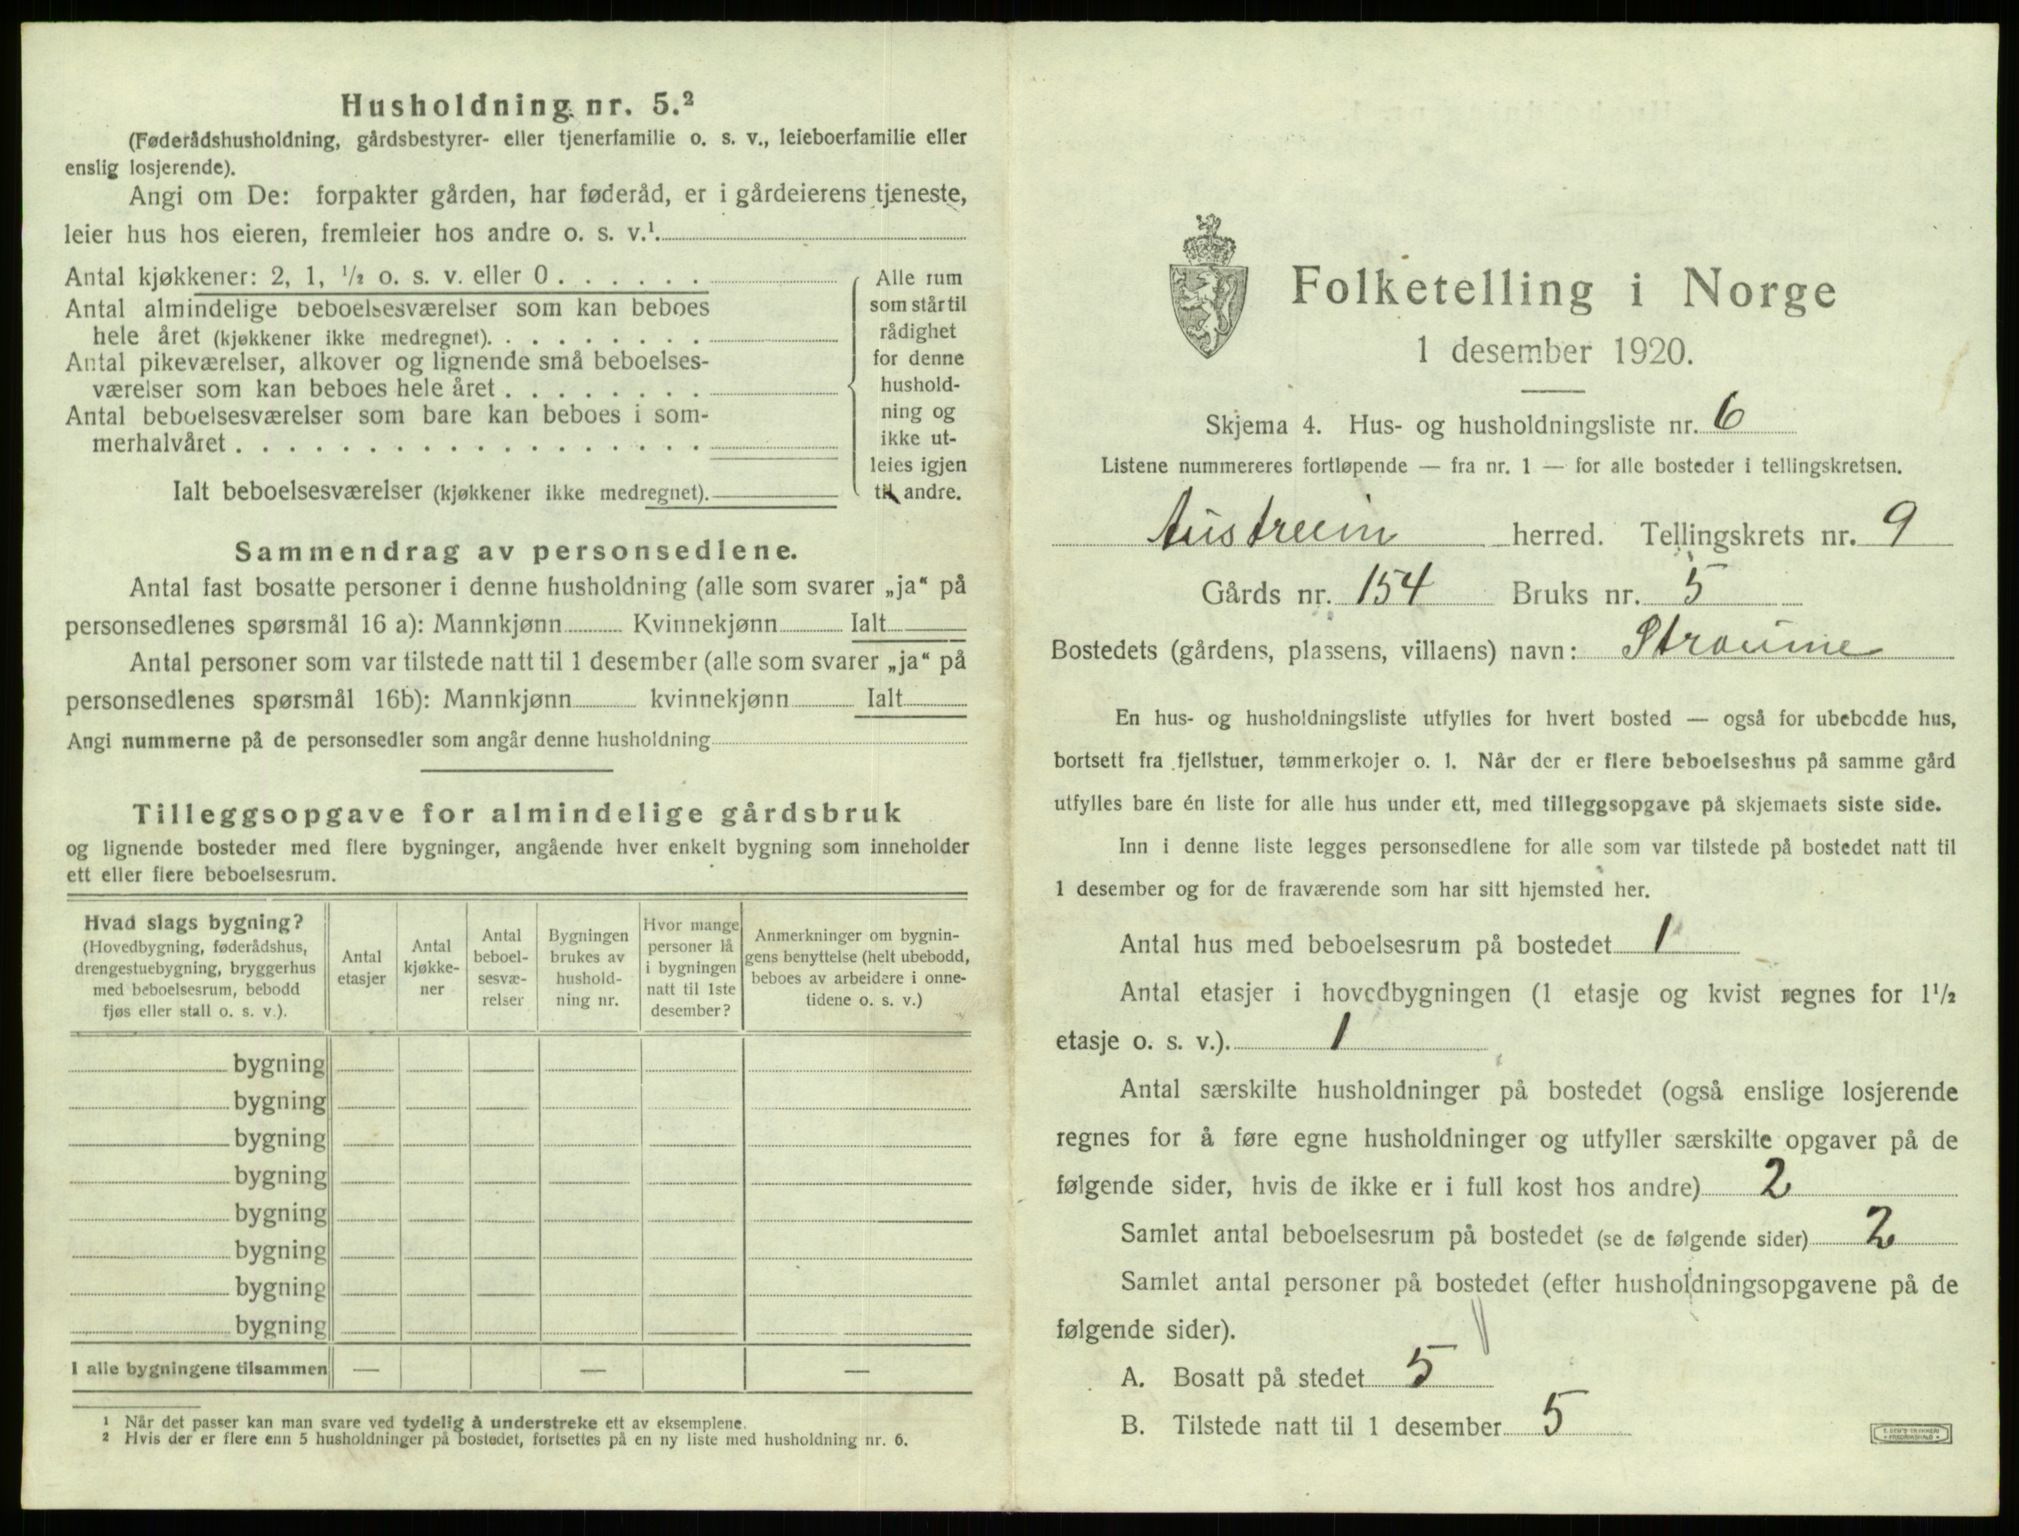 Husholdning nr. 5.²
(Føderådshusholdning, gårdsbestyrer- eller tjenerfamilie o. s. v., leieboerfamilie eller
enslig losjerende).
Angi om De: forpakter gården, har føderåd, er i gårdeierens tjeneste,
leier hus hos eieren, fremleier hos andre o. s. v.¹.
Antal kjøkkener: 2, 1, ½ o. s. v. eller 0 . . . . . .
Antal almindelige beboelsesværelser som kan beboes
hele året (kjøkkener ikke medregnet). . . . . . . . .
Antal pikeværelser, alkover og lignende små beboelses-
værelser som kan beboes hele året . . . . . . . .
Antal beboelsesværelser som bare kan beboes i som-
merhalvåret . . . . . . . . . . . . . . . . . .
Ialt beboelsesværelser (kjøkkener ikke medregnet).
Alle rum
som står til
rådighet
for denne
hushold-
ning og
ikke ut-
leies igjen
til andre.
Sammendrag av personsedlene.
Antal fast bosatte personer i denne husholdning (alle som svarer „ja“ på
personsedlenes spørsmål 16 a): Mannkjønn Kvinnekjønn Ialt
Antal personer som var tilstede natt til 1 desember (alle som svarer „ja“ på
personsedlenes spørsmål 16b): Mannkjønn kvinnekjønn Ialt
Angi nummerne på de personsedler som angår denne husholdning
Tilleggsopgave for almindelige gårdsbruk
og lignende bosteder med flere bygninger, angående hver enkelt bygning som inneholder
ett eller flere beboelsesrum.
Hvad slags bygning?
(Hovedbygning, føderådshus,
drengestuebygning, bryggerhus
med beboelsesrum, bebodd
fjøs eller stall o. s. v.).
Antal
etasjer
Antal
kjøkke-
ner
Antal
beboel-
sesvæ-
relser
Bygningen
brukes av
hushold-
ning nr.
Hvor mange
personer lå
i bygningen
natt til 1ste
desember?
Anmerkninger om bygnin-
gens benyttelse (helt ubebodd,
beboes av arbeidere i onne-
tidene o. s. v.)
bygning
bygning
bygning
bygning
bygning
bygning
bygning
bygning
I alle bygningene tilsammen — — —
¹ Når det passer kan man svare ved tydelig å understreke ett av eksemplene.
² Hvis der er flere enn 5 husholdninger på bostedet, fortsettes på en ny liste med husholdning nr. 6.
Folketelling i Norge
1 desember 1920.
Skjema 4. Hus- og husholdningsliste nr. 6
Listene nummereres fortløpende — fra nr. 1 — for alle bosteder i tellingskretsen.
Austreim herred. Tellingskrets nr. 9
Gårds nr. 154 Bruks nr. 5
Bostedets (gårdens, plassens, villaens) navn: Straume
En hus- og husholdningsliste utfylles for hvert bosted — også for ubebodde hus,
bortsett fra fjellstuer, tømmerkojer o. l. Når der er flere beboelseshus på samme gård
utfylles bare én liste for alle hus under ett, med tilleggsopgave på skjemaets siste side.
Inn i denne liste legges personsedlene for alle som var tilstede på bostedet natt til
1 desember og for de fraværende som har sitt hjemsted her.
Antal hus med beboelsesrum på bostedet 1
Antal etasjer i hovedbygningen (1 etasje og kvist regnes for 1½
etasje o. s. v.). 1
Antal særskilte husholdninger på bostedet (også enslige losjerende
regnes for å føre egne husholdninger og utfyller særskilte opgaver på de
følgende sider, hvis de ikke er i full kost hos andre) 2
Samlet antal beboelsesrum på bostedet (se de følgende sider) 2
Samlet antal personer på bostedet (efter husholdningsopgavene på de
følgende sider).
A. Bosatt på stedet 5
B. Tilstede natt til 1 desember 5